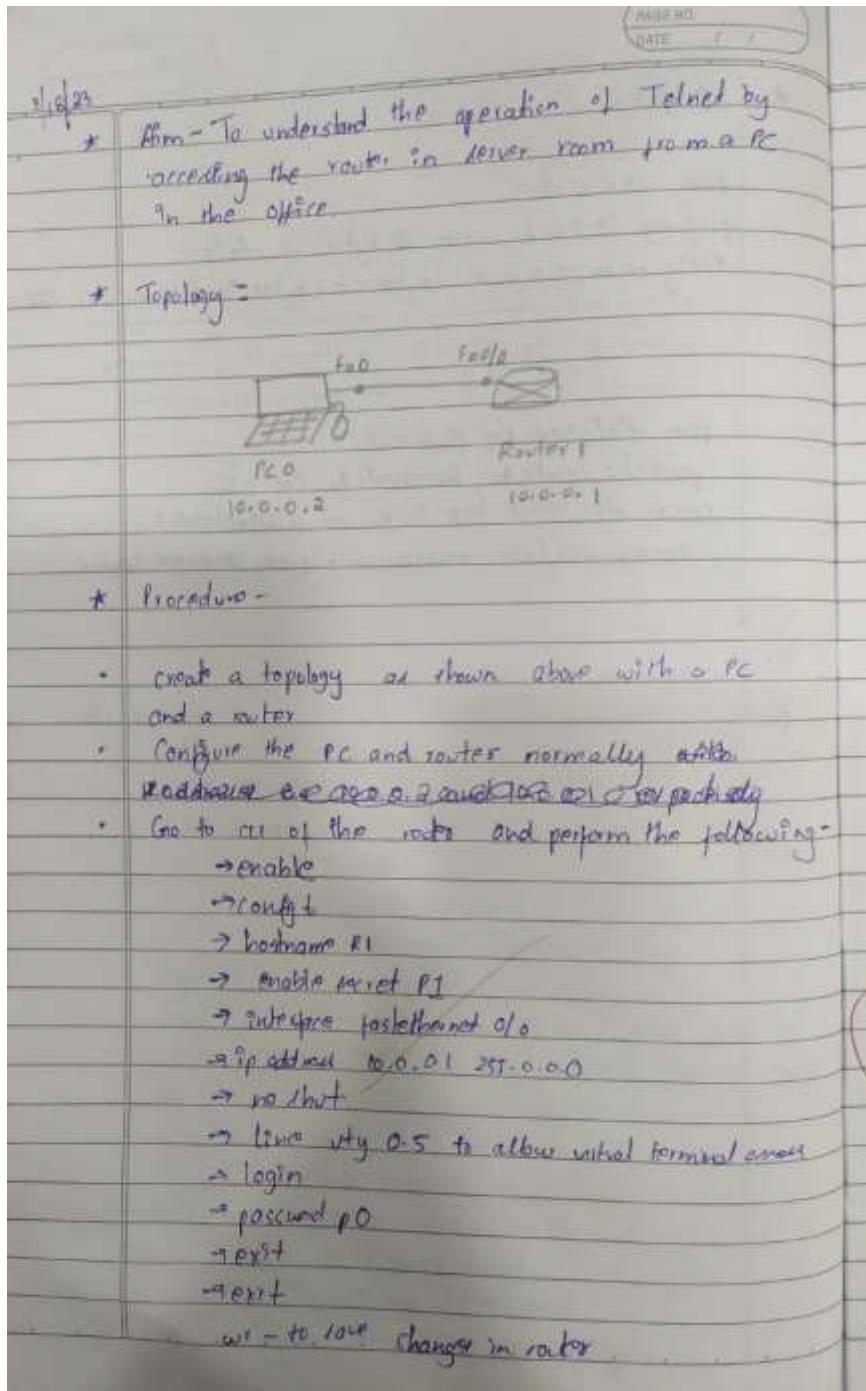 PAGE NO.
DATE / /
* Aim - To understand the operation of Telnet by
accessing the router in server room from a PC
in the office
* Topology =
Fa0 Fa0/0
PC 0 Router 1
10.0.0.2 10.0.0.1
* Procedure -
• create a topology as shown above with a PC
and a router
• Configure the PC and router normally
• Go to CLI of the router and perform the following -
→ enable
→ config t
→ hostname R1
→ enable secret P1
→ interface fastethernet 0/0
→ ip address 10.0.0.1 255.0.0.0
→ no shut
→ line vty 0-5 to allow virtual terminal access
→ login
→ password p0
→ exit
→ exit
wr - to save changes in router